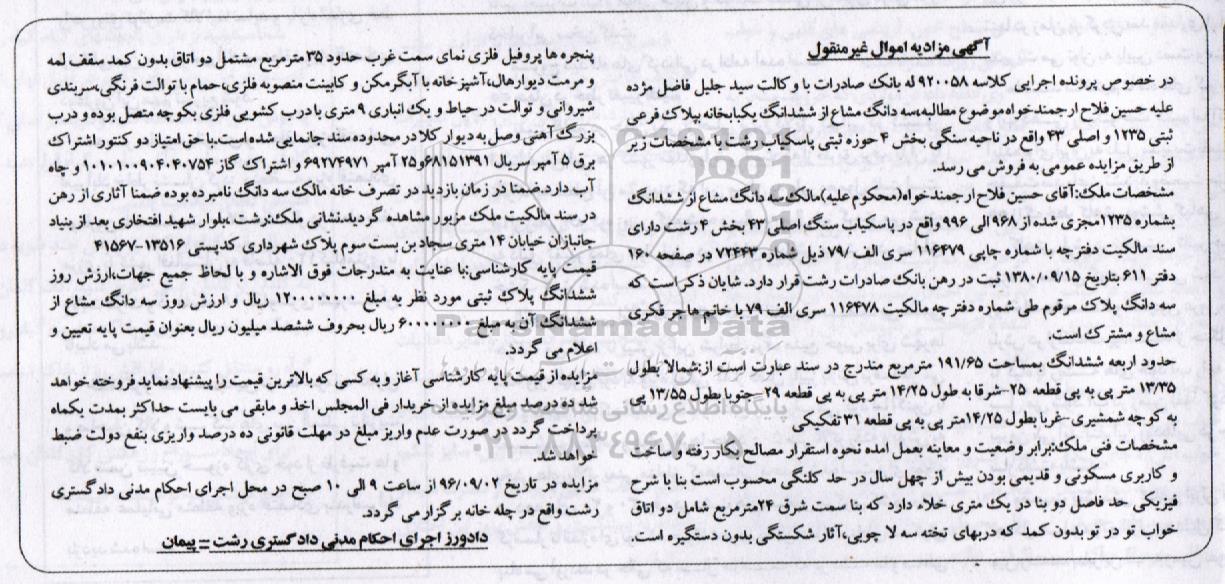 آگهی مزایده اموال غیر منقول
در خصوص پرونده اجرایی کلاسه ۹۲۰۰۵۸ له بانک صادرات با وکالت سید جلیل فاضل یزده
علیه حسین فلاح ارجمندخواه،موضوع مطالبه،سه دانگ مشاع از ششدانگ یکبابخانه بپلاک فرعی
ثبتی ۱۲۳۵ و اصلی ۴۳ واقع در ناحیه سنگی بخش ۴ حوزه ثبتی پاسکیاب رشت با مشخصات زیر
از طریق مزایده عمومی به فروش می رسد.
مشخصات ملک:آقای حسین فلاح ارجمندخواه(محکوم علیه)مالک سه دانگ مشاع از ششدانگ
بشماره ۱۲۳۵مجزی شده از ۹۶۸ الی ۹۹۶ واقع در پاسکیاب سنگ اصلی ۴۳ بخش ۴ رشت دارای
سند مالکیت دفترچه با شماره چاپی ۱۱۶۴۷۹ سری الف /۷۹ ذیل شماره ۷۲۴۶۳ در صفحه ۱۶۰
دفتر ۶۱۱ بتاریخ ۱۳۸۰/۰۹/۱۵ ثبت در رهن بانک صادرات رشت قرار دارد. شایان ذکر است که
سه دانگ پلاک مرقوم طی شماره دفترچه مالکیت ۱۱۶۴۷۸ سری الف ۷۹ با خانم هاجر فکری
مشاع و مشترک است.
حدود اربعه ششدانگ بمساحت ۱۹۱/۶۵ مترمربع مندرج در سند عبارت است از:شمالا بطول
۱۳/۳۵ متر پی به پی قطعه ۲۵-شرقا به طول ۱۴/۲۵ متر پی به پی قطعه ۲۹- جنوبا بطول ۱۳/۵۵ پی
به کوچه ششمتری-غربا بطول ۱۴/۲۵متر پی به پی قطعه ۳۱ تفکیکی
مشخصات فنی ملک:برابر وضعیت و معاینه بعمل امده نحوه استقرار مصالح بکار رفته و ساخت
و کاربری مسکونی و قدیمی بودن بیش از چهل سال در حد کلنگی محسوب است بنا با شرح
فیزیکی حد فاصل دو بنا در یک متری خلاء دارد که بنا سمت شرق ۲۴مترمربع شامل دو اتاق
خواب تو در تو بدون کمد که دربهای تخته سه لا چوبی،آثار شکستگی بدون دستگیره است.
پنجره ها پروفیل فلزی نمای سمت غرب حدود ۳۵ مترمربع مشتمل دو اتاق بدون کمد،سقف لمه
و سردر دیوار هال،آشپزخانه با آبگرمکن و کابینت منصوبه فلزی،حمام با توالت فرنگی،سربندی
شیروانی و توالت در حیاط و یک انباری ۹ متری با درب کشویی فلزی بکوچه متصل بوده و درب
بزرگ آهنی وصل به دیوار کلا در محدوده سند جانمایی شده است.با حق امتیاز دو کنتور اشتراک
برق ۵ آمپر سریال ۶۸۱۵۱۳۹۱و ۲۵ آمپر ۶۹۲۷۴۹۷۱ و اشتراک گاز ۰۱۰۱۰۱۰۹۰۴۰۴۰۷۵۴ و چاه
آب دارد.ضمنا در زمان بازدید در تصرف خانه مالک سه دانگ نامبرده بوده ضمنا آثاری از رهن
در سند مالکیت ملک مزبور مشاهده گردید.نشانی ملک:رشت بلوار شهید افتخاری بعد از بنیاد
جانبازان خیابان ۱۴ متری سجاد بن بست سوم پلاک شهرداری کدپستی ۱۳۵۱۶-۴۱۵۶۷
قیمت پایه کارشناسی:با عنایت به مندرجات فوق الاشاره و با لحاظ جمیع جهات،ارزش روز
ششدانگ پلاک ثبتی مورد نظر به مبلغ ۱۲۰۰۰۰۰۰۰۰ ریال و ارزش روز سه دانگ مشاع از
ششدانگ آن به مبلغ ۶۰۰۰۰۰۰۰۰ ریال بحروف ششصد میلیون ریال بعنوان قیمت پایه تعیین و
اعلام می گردد.
مزایده از قیمت پایه کارشناسی آغاز و به کسی که بالاترین قیمت را پیشنهاد نماید فروخته خواهد
شد ده درصد مبلغ مزایده از خریدار فی المجلس اخذ و مابقی می بایست حداکثر بمدت یکماه
پرداخت گردد در صورت عدم واریز مبلغ در مهلت قانونی ده درصد واریزی بنفع دولت ضبط
خواهد شد.
مزایده در تاریخ ۹۶/۰۹/۰۲ از ساعت ۹ الی ۱۰ صبح در محل اجرای احکام مدنی دادگستری
رشت واقع در چله خانه برگزار می گردد.
دادورز اجرای احکام مدنی دادگستری رشت – پیمان
ParsNamadData
پایگاه اطلاع رسانی مناقصه و مزایده
۰۲۱-۸۸۳۴۹۶۷۰-۵